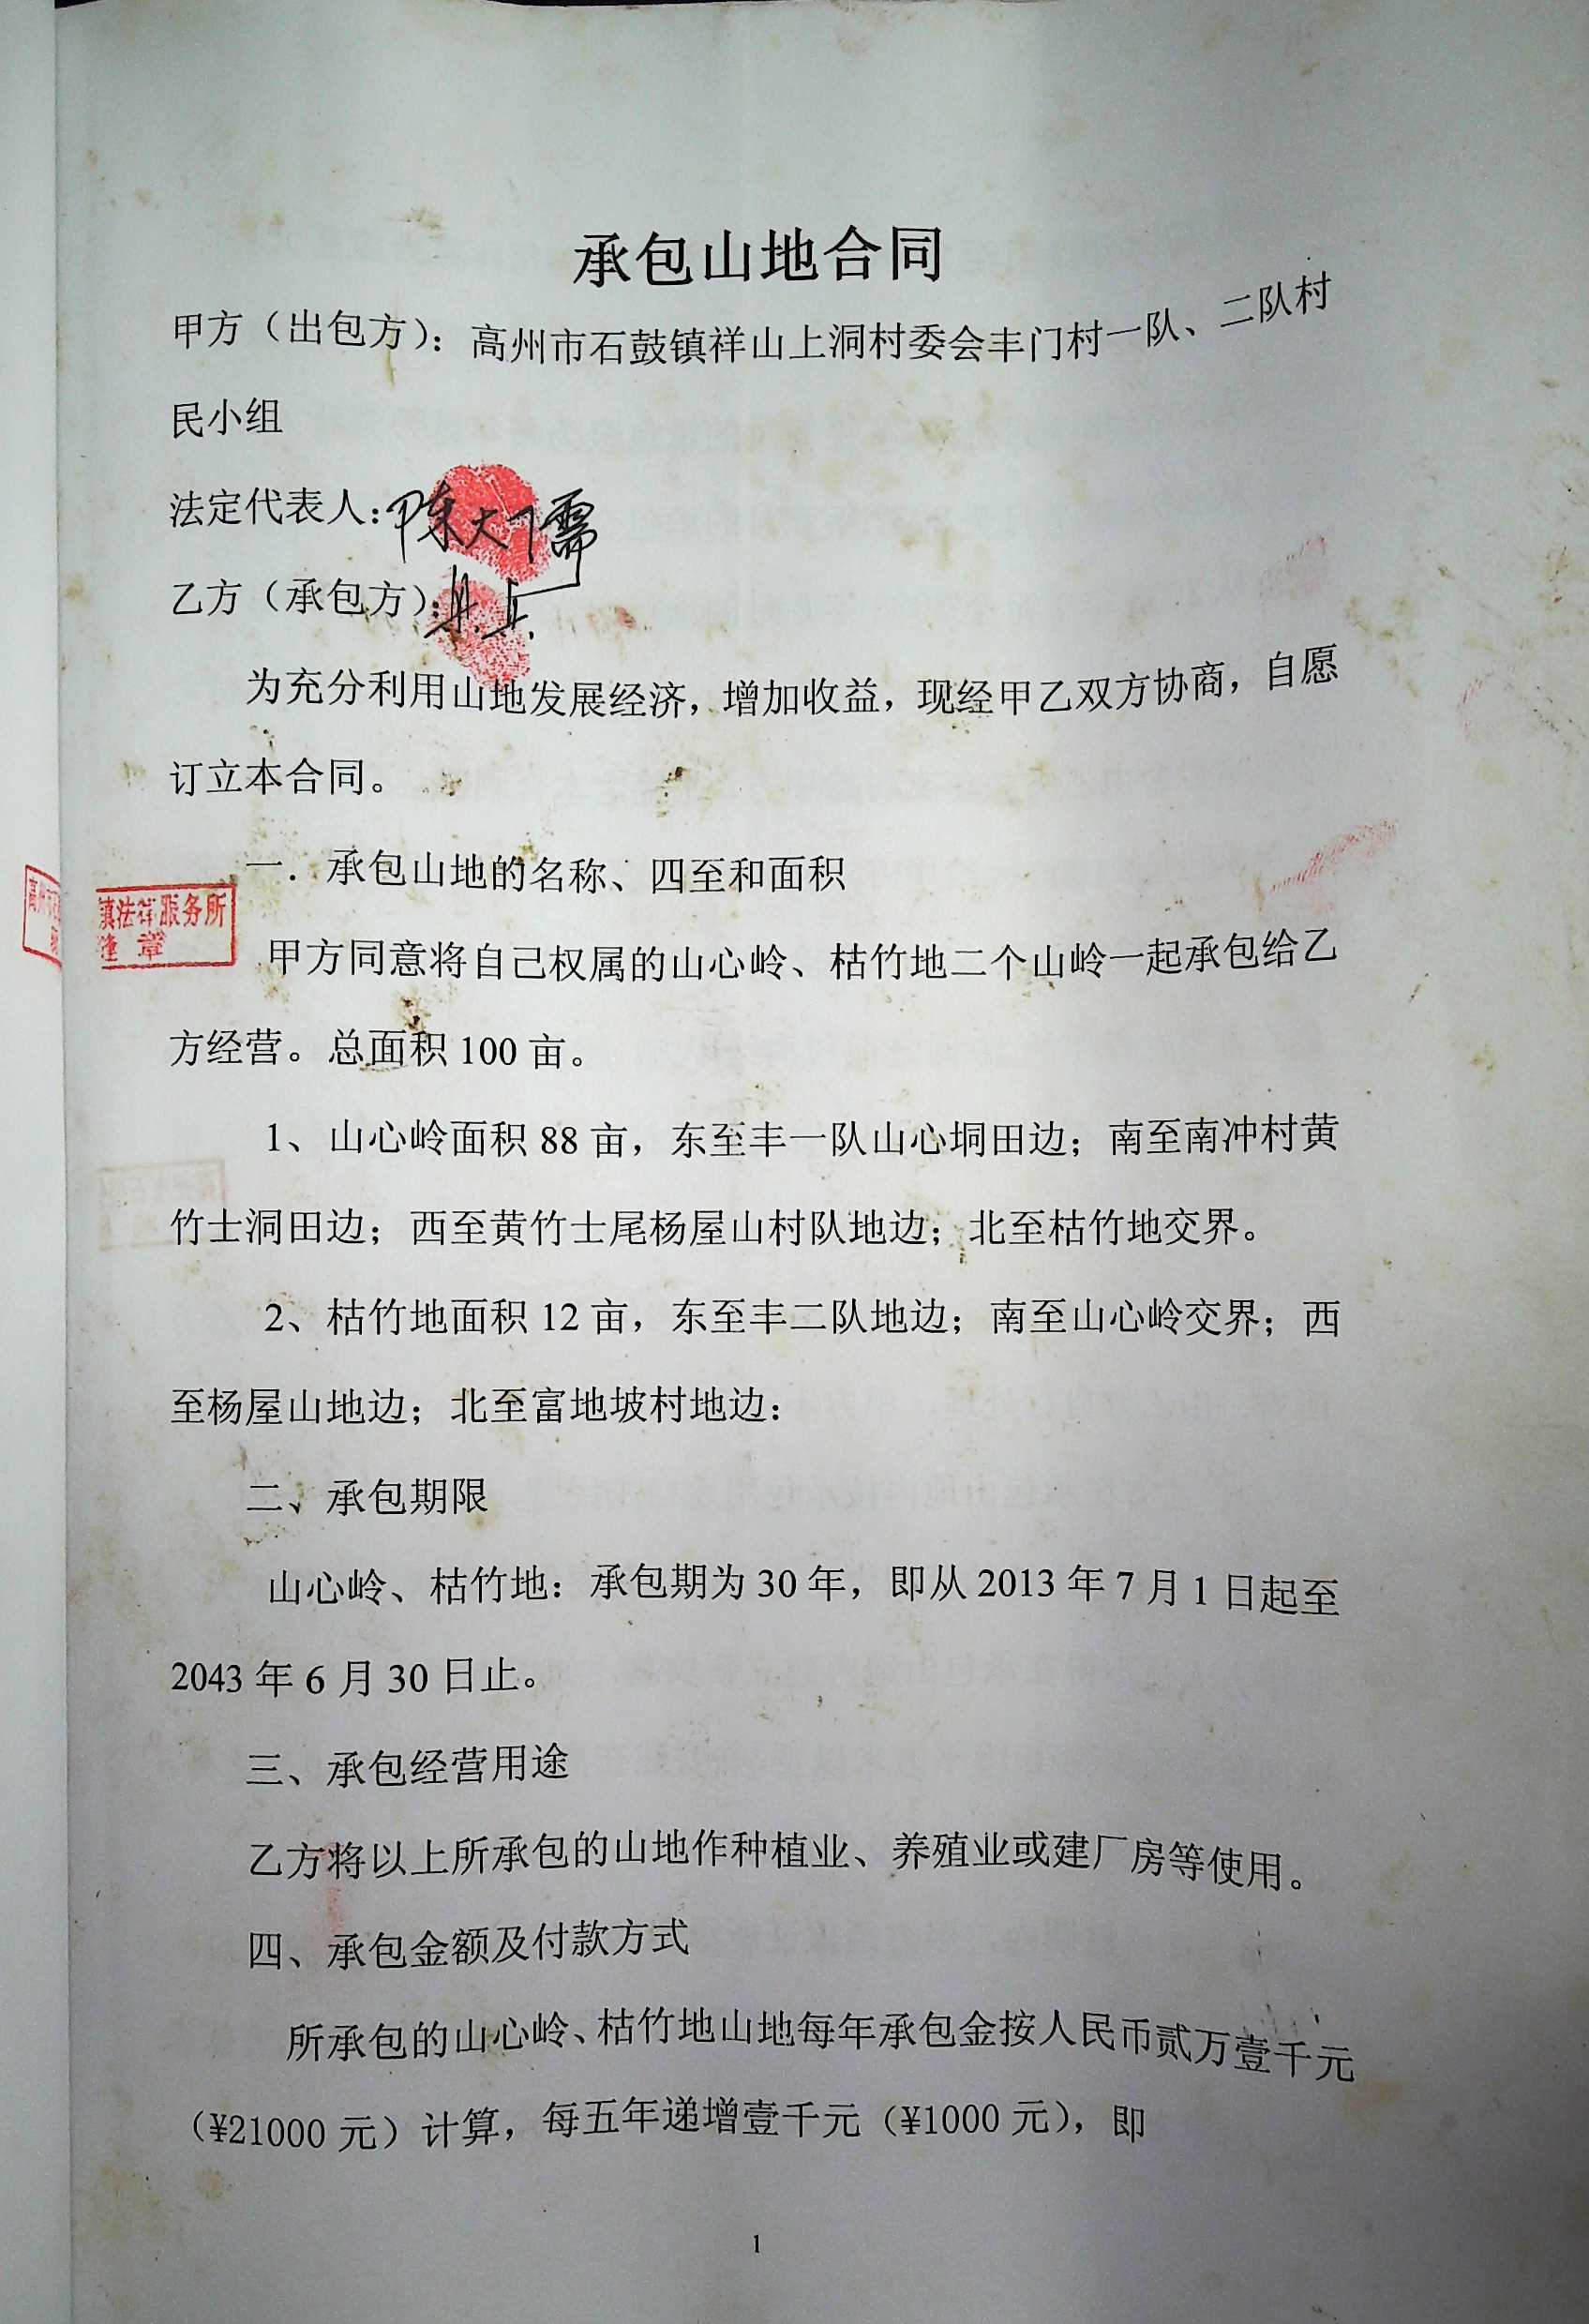 承包山地合同
甲方（出包方）：高州市石鼓镇祥山上洞村委会丰门村一队、二队村
民小组
法定代表人：陈大儒
乙方（承包方）：
为充分利用山地发展经济，增加收益，现经甲乙双方协商，自愿
订立本合同。
一．承包山地的名称、四至和面积
镇法律服务所
缝章
甲方同意将自己权属的山心岭、枯竹地二个山岭一起承包给乙
方经营。总面积100亩。
1、山心岭面积88亩，东至丰一队山心垌田边；南至南冲村黄
竹士洞田边；西至黄竹士尾杨屋山村队地边；北至枯竹地交界。
2、枯竹地面积12亩，东至丰二队地边；南至山心岭交界；西
至杨屋山地边；北至富地坡村地边：
二、承包期限
山心岭、枯竹地：承包期为30年，即从2013年7月1日起至
2043年6月30日止。
三、承包经营用途
乙方将以上所承包的山地作种植业、养殖业或建厂房等使用。
四、承包金额及付款方式
所承包的山心岭、枯竹地山地每年承包金按人民币贰万壹千元
（¥21000元）计算，每五年递增壹千元（¥1000元），即
1